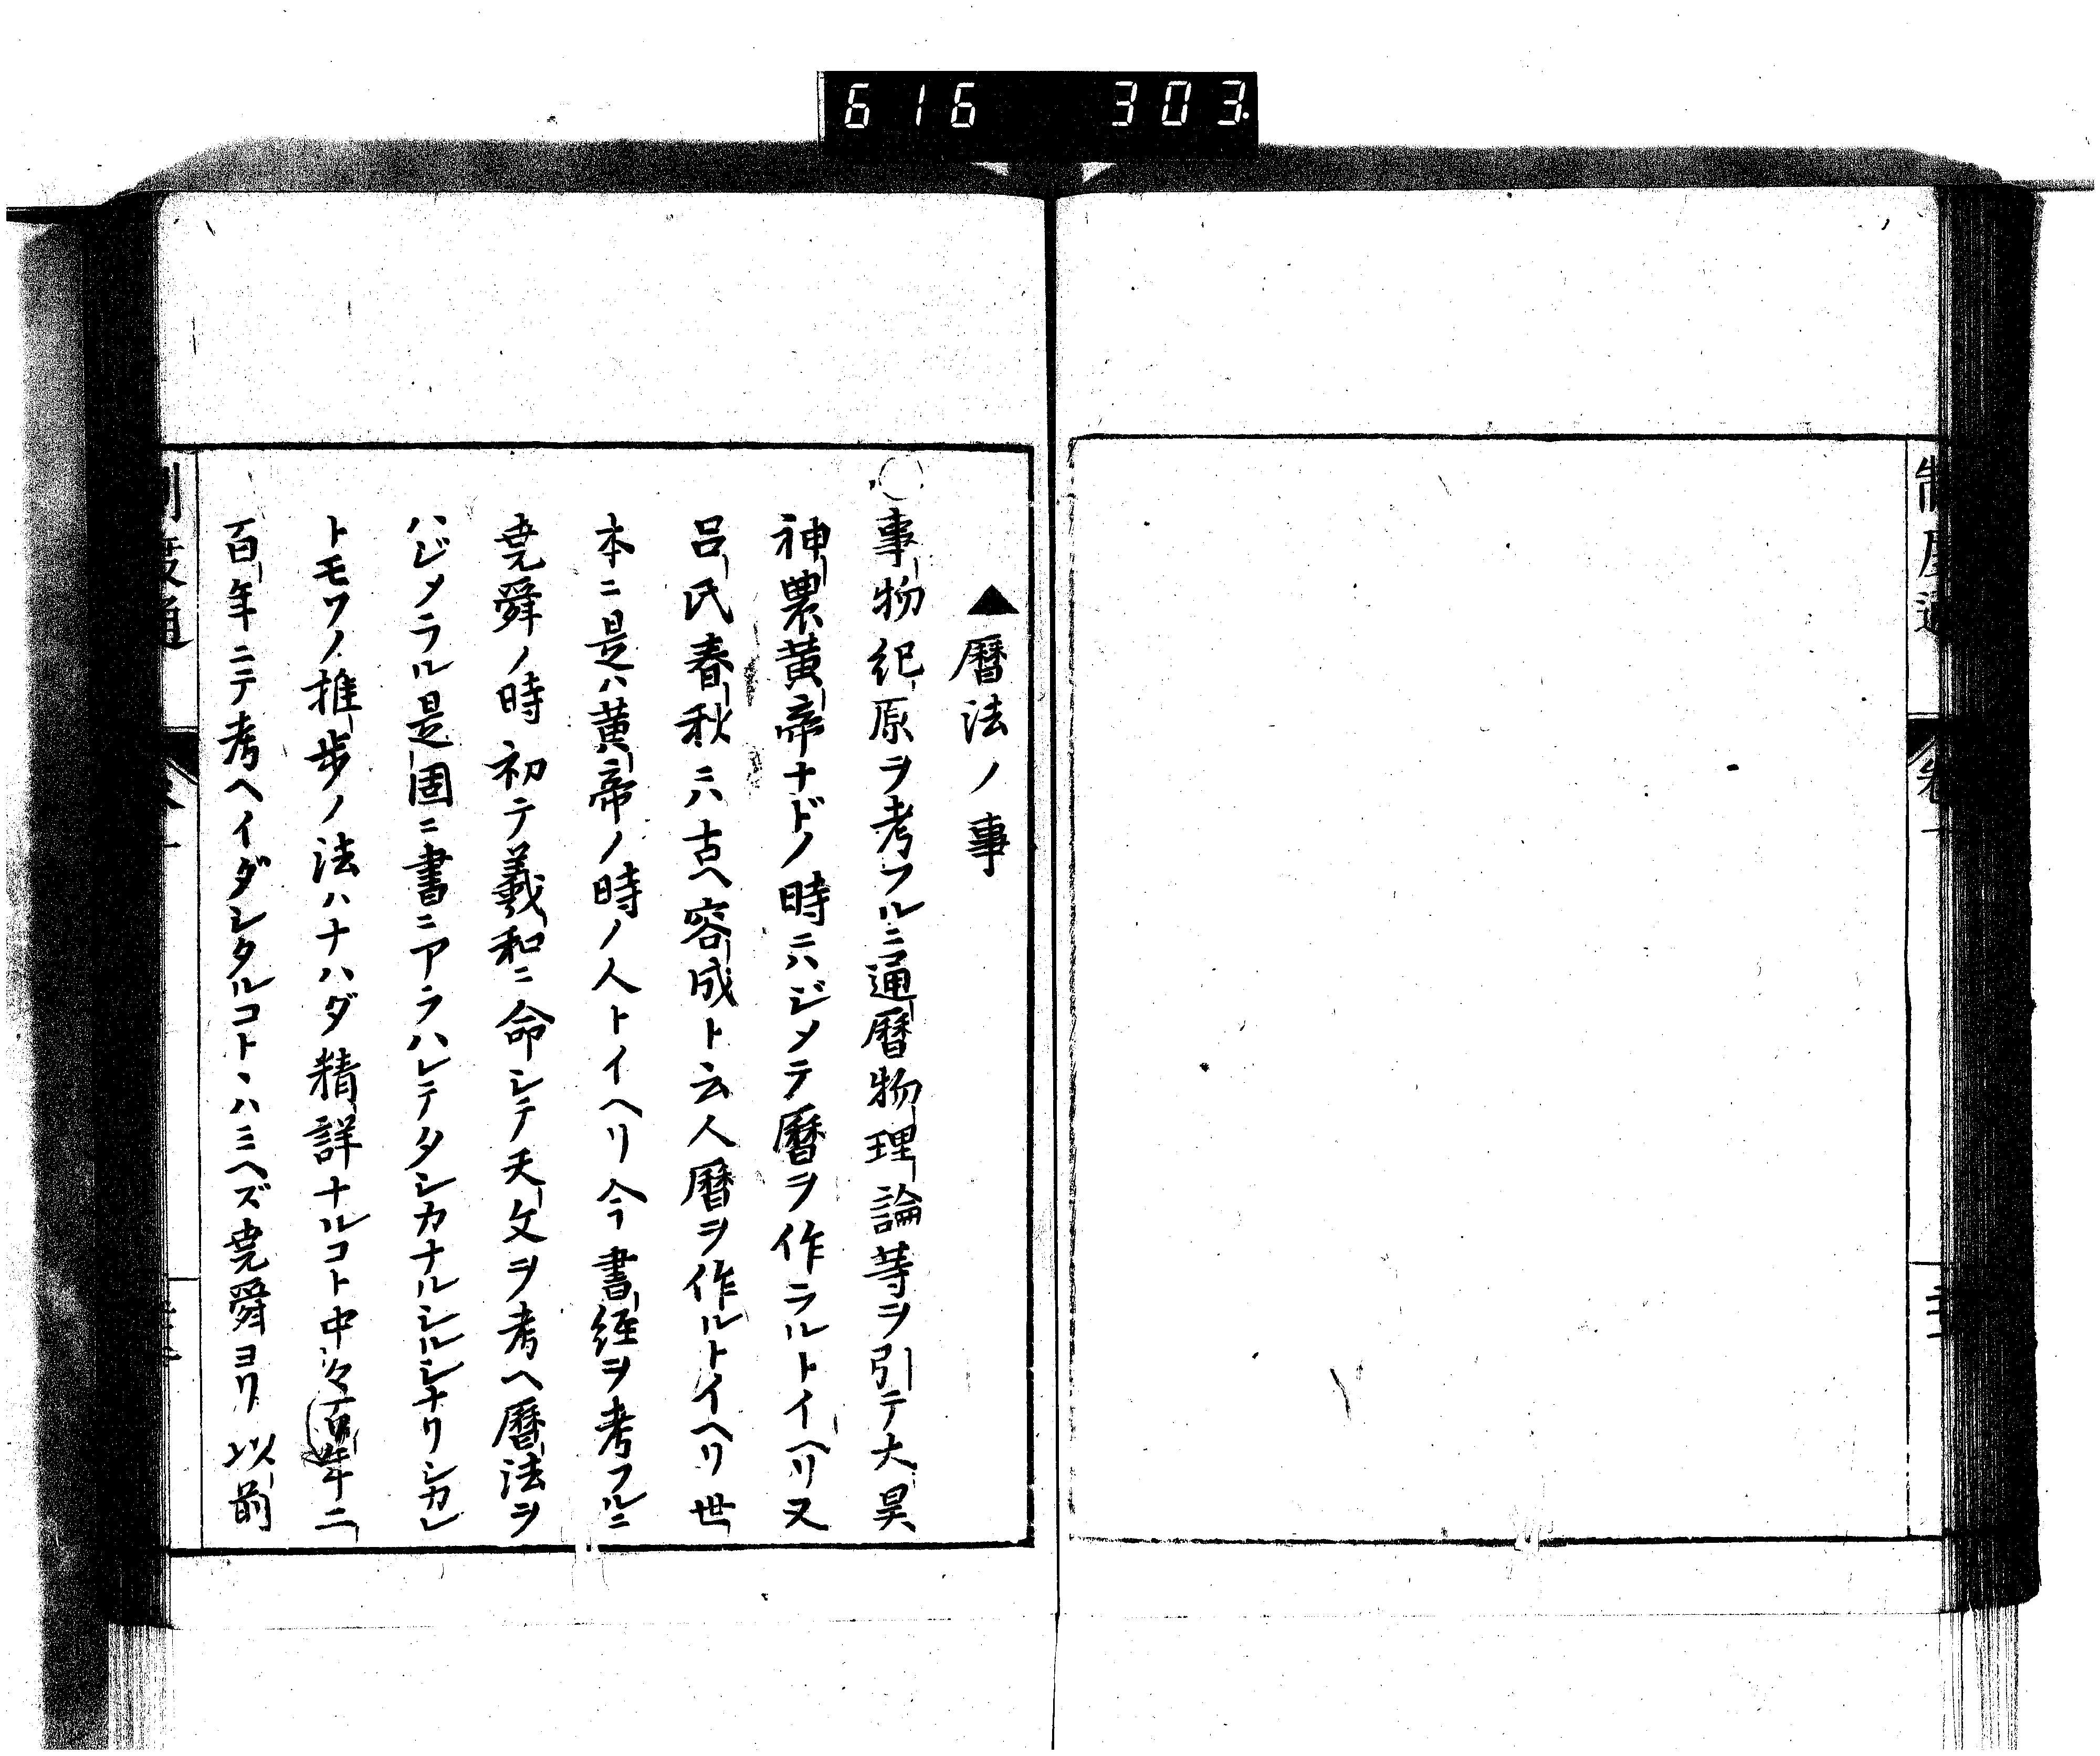 6 1 6 3 0 3.
制度通
卷一
▲暦法ノ事
○事物紀原ヲ考フルニ通暦物理論等ヲ引テ大昊
神農黄帝ナドノ時ニハジメテ暦ヲ作ラルトイヘリ又
呂氏春秋ニハ古ヘ容成ト云人暦ヲ作ルトイヘリ世
本ニ是ハ黄帝ノ時ノ人トイヘリ今書経ヲ考フルニ
堯舜ノ時初テ羲和ニ命シテ天文ヲ考ヘ暦法ヲ
ハジメラル是固ニ書ニアラハレテタシカナルシルシナリシカレ
トモワノ推歩ノ法ハナハダ精詳ナルコト中々百年二
百年ニテ考ヘイダシタルコトヽハミヘズ堯舜ヨリ以前
制度通